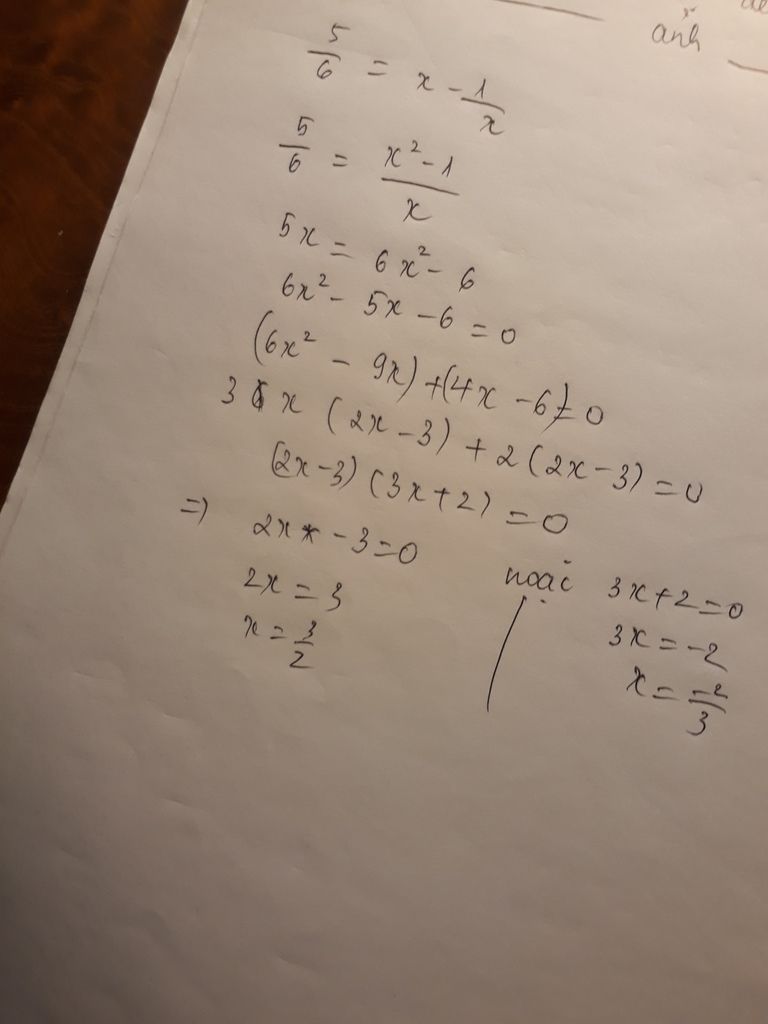 ảnh
5/6 = x - 1/x
5/6 = (x² - 1)/x
5x = 6x² - 6
6x² - 5x - 6 = 0
(6x² - 9x) + (4x - 6) = 0
3x (2x - 3) + 2 (2x - 3) = 0
(2x - 3) (3x + 2) = 0
=> 2x - 3 = 0 hoặc 3x + 2 = 0
2x = 3 3x = -2
x = 3/2 x = -2/3